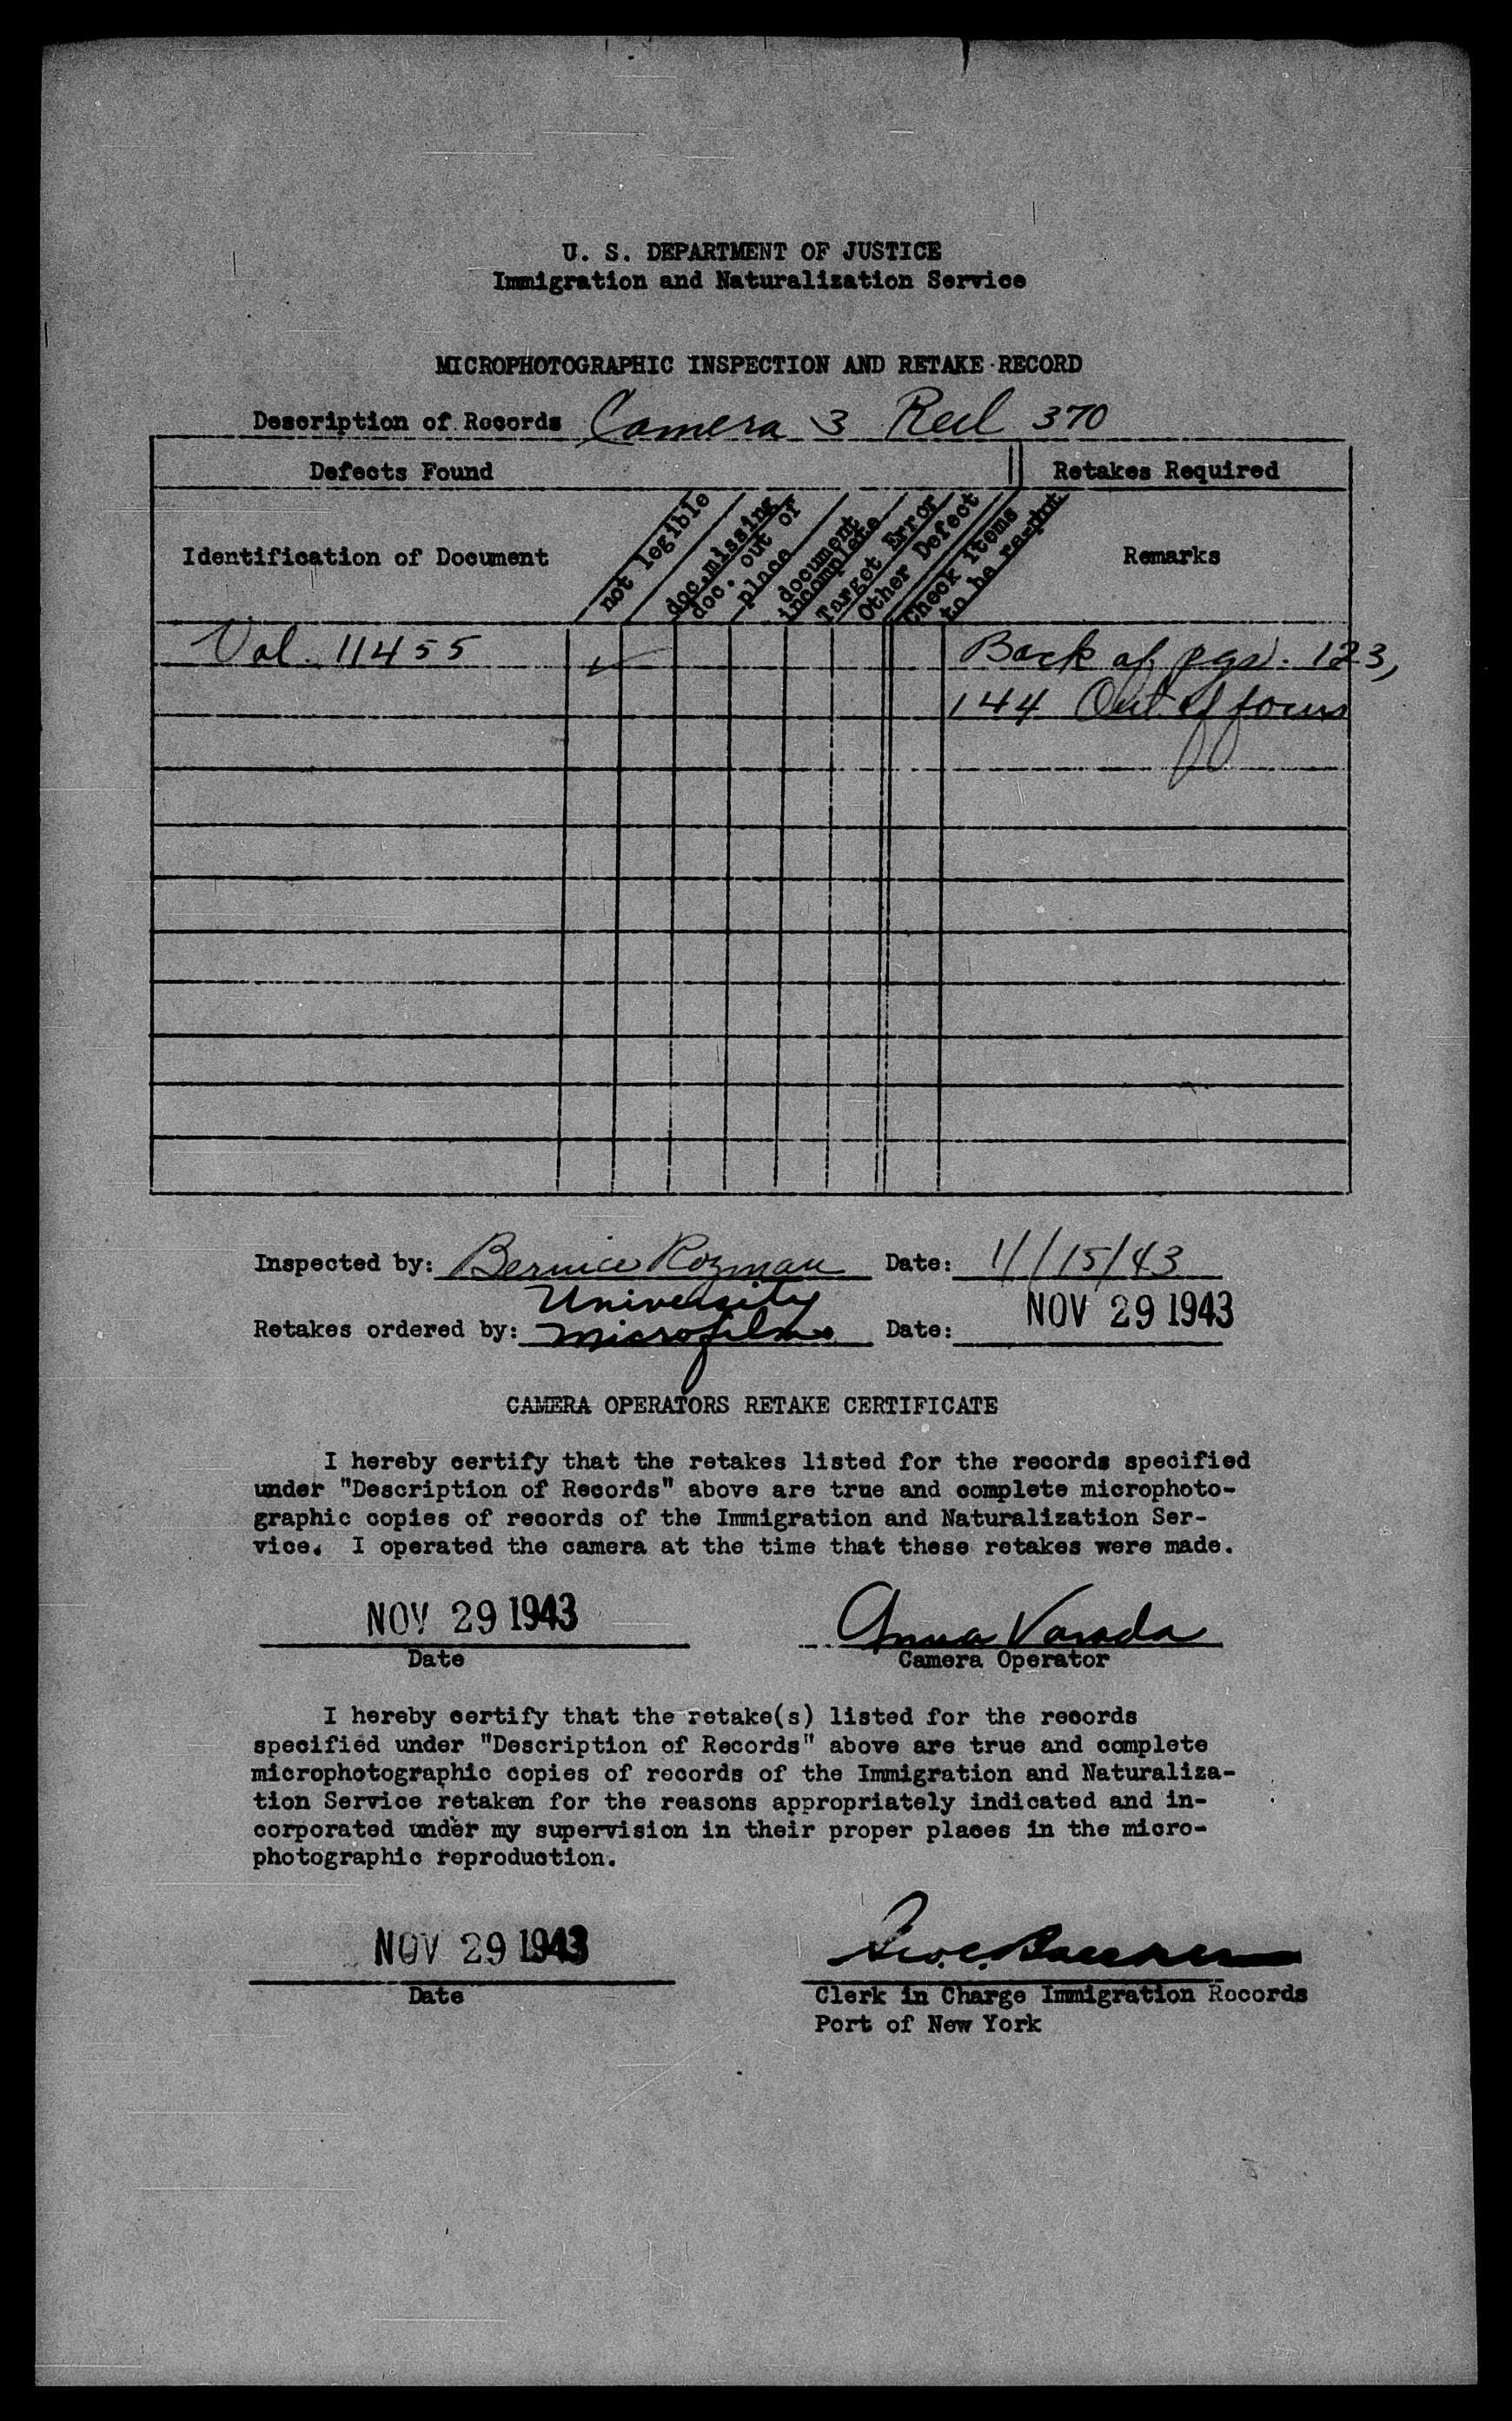 U. S. DEPARTMENT OF JUSTICE
Immigration and Naturalization Service
MICROPHOTOGRAPHIC INSPECTION AND RETAKE RECORD
Description of Records Camera 3 Reel 370
Defects Found
Retakes Required
Identification of Document
not legible
doc. missing
doc. out of
place
document
incomplete
Target Error
Other Defect
Check items
to be re-phot
Remarks
Vol. 11455 ✓ Back of pgs. 123,
144 Out of focus
Inspected by: Bernice Rozman Date: 11/15/43
University
Retakes ordered by: Microfilms Date: NOV 29 1943
CAMERA OPERATORS RETAKE CERTIFICATE
I hereby certify that the retakes listed for the records specified
under "Description of Records" above are true and complete microphoto-
graphic copies of records of the Immigration and Naturalization Ser-
vice. I operated the camera at the time that these retakes were made.
NOV 29 1943 Anna Varada
Date Camera Operator
I hereby certify that the retake(s) listed for the records
specified under "Description of Records" above are true and complete
microphotographic copies of records of the Immigration and Naturaliza-
tion Service retaken for the reasons appropriately indicated and in-
corporated under my supervision in their proper places in the micro-
photographic reproduction.
NOV 29 1943
Date Clerk in Charge Immigration Records
Port of New York